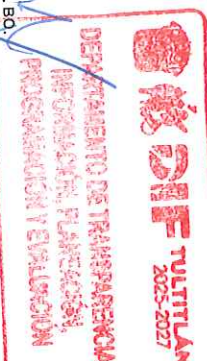 DIF TULTITLÁN
2025-2027
DEPARTAMENTO DE TRANSPARENCIA
INFORMACIÓN, PLANEACIÓN,
PROGRAMACIÓN Y EVALUACIÓN
BO.